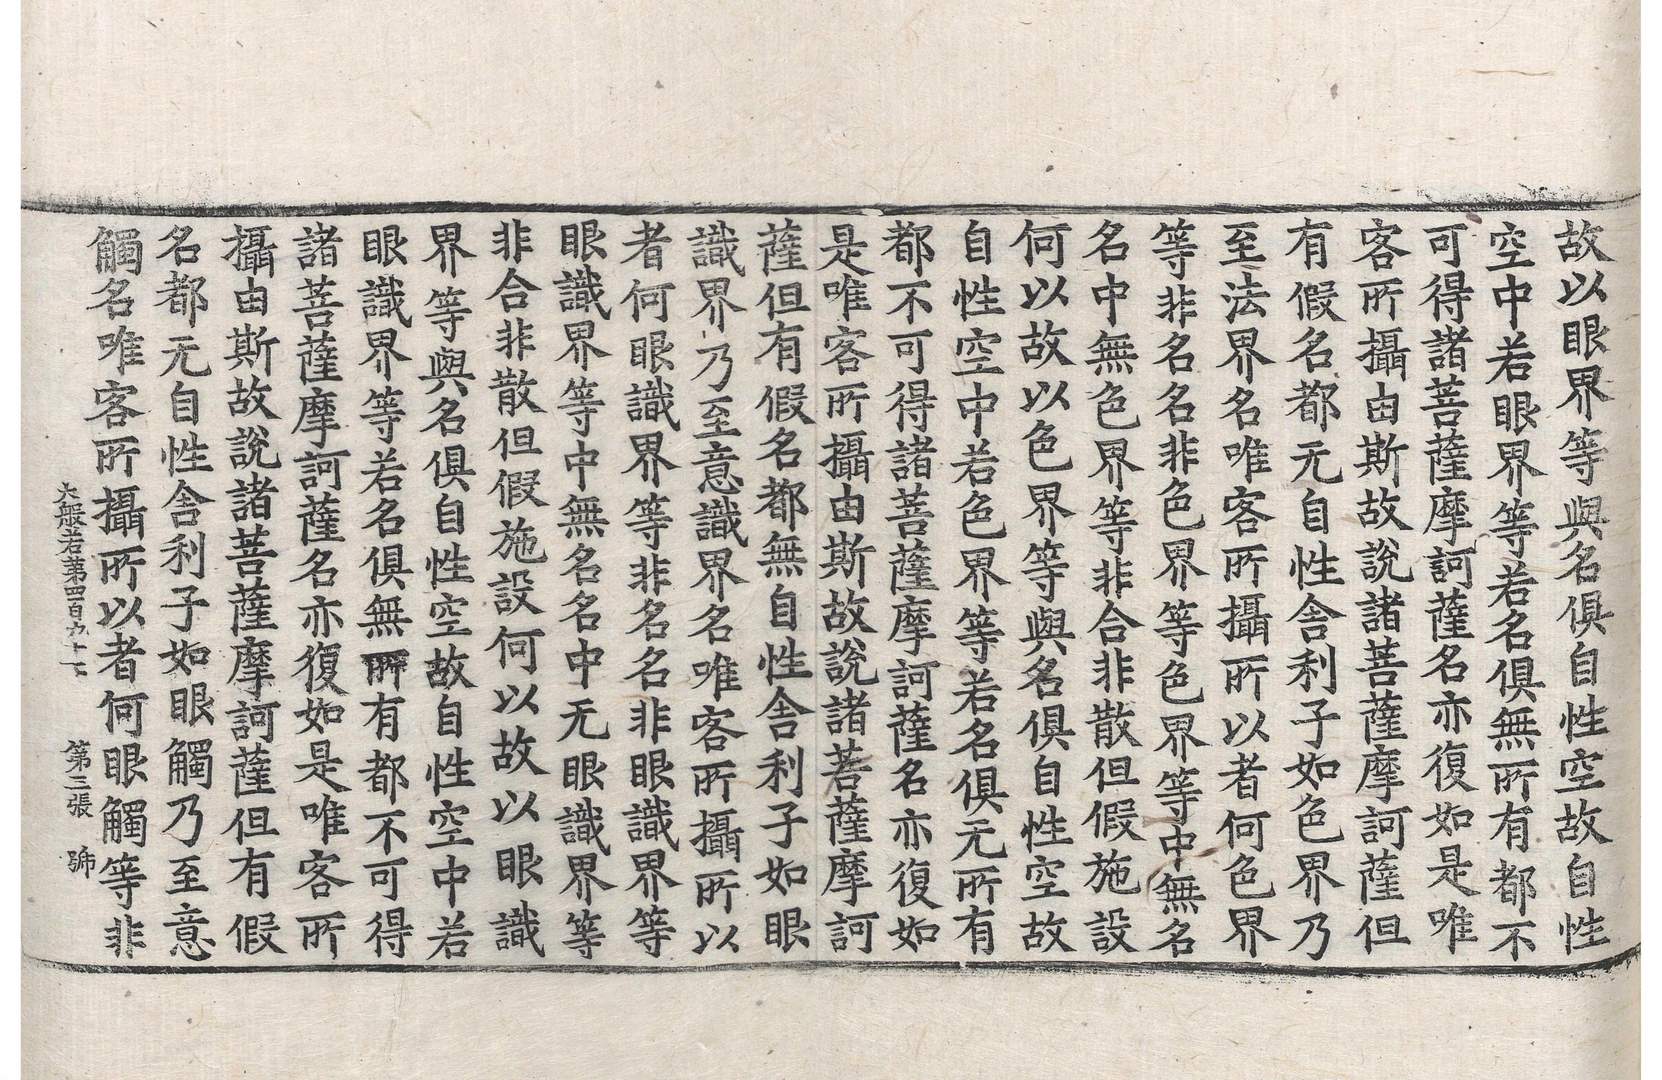 故以眼界等與名俱自性空故自性
空中若眼界等若名俱無所有都不
可得諸菩薩摩訶薩名亦復如是唯
客所攝由斯故說諸菩薩摩訶薩但
有假名都无自性舍利子如色界乃
至法界名唯客所攝所以者何色界
等非名名非色界等色界等中無名
名中無色界等非合非散但假施設
何以故以色界等與名俱自性空故
自性空中若色界等若名俱无所有
都不可得諸菩薩摩訶薩名亦復如
是唯客所攝由斯故說諸菩薩摩訶
薩但有假名都無自性舍利子如眼
識界乃至意識界名唯客所攝所以
者何眼識界等非名名非眼識界等
眼識界等中無名名中无眼識界等
非合非散但假施設何以故以眼識
界等與名俱自性空故自性空中若
眼識界等若名俱無所有都不可得
諸菩薩摩訶薩名亦復如是唯客所
攝由斯故說諸菩薩摩訶薩但有假
名都无自性舍利子如眼觸乃至意
觸名唯客所攝所以者何眼觸等非
大般若第四百九十七 第三張 號